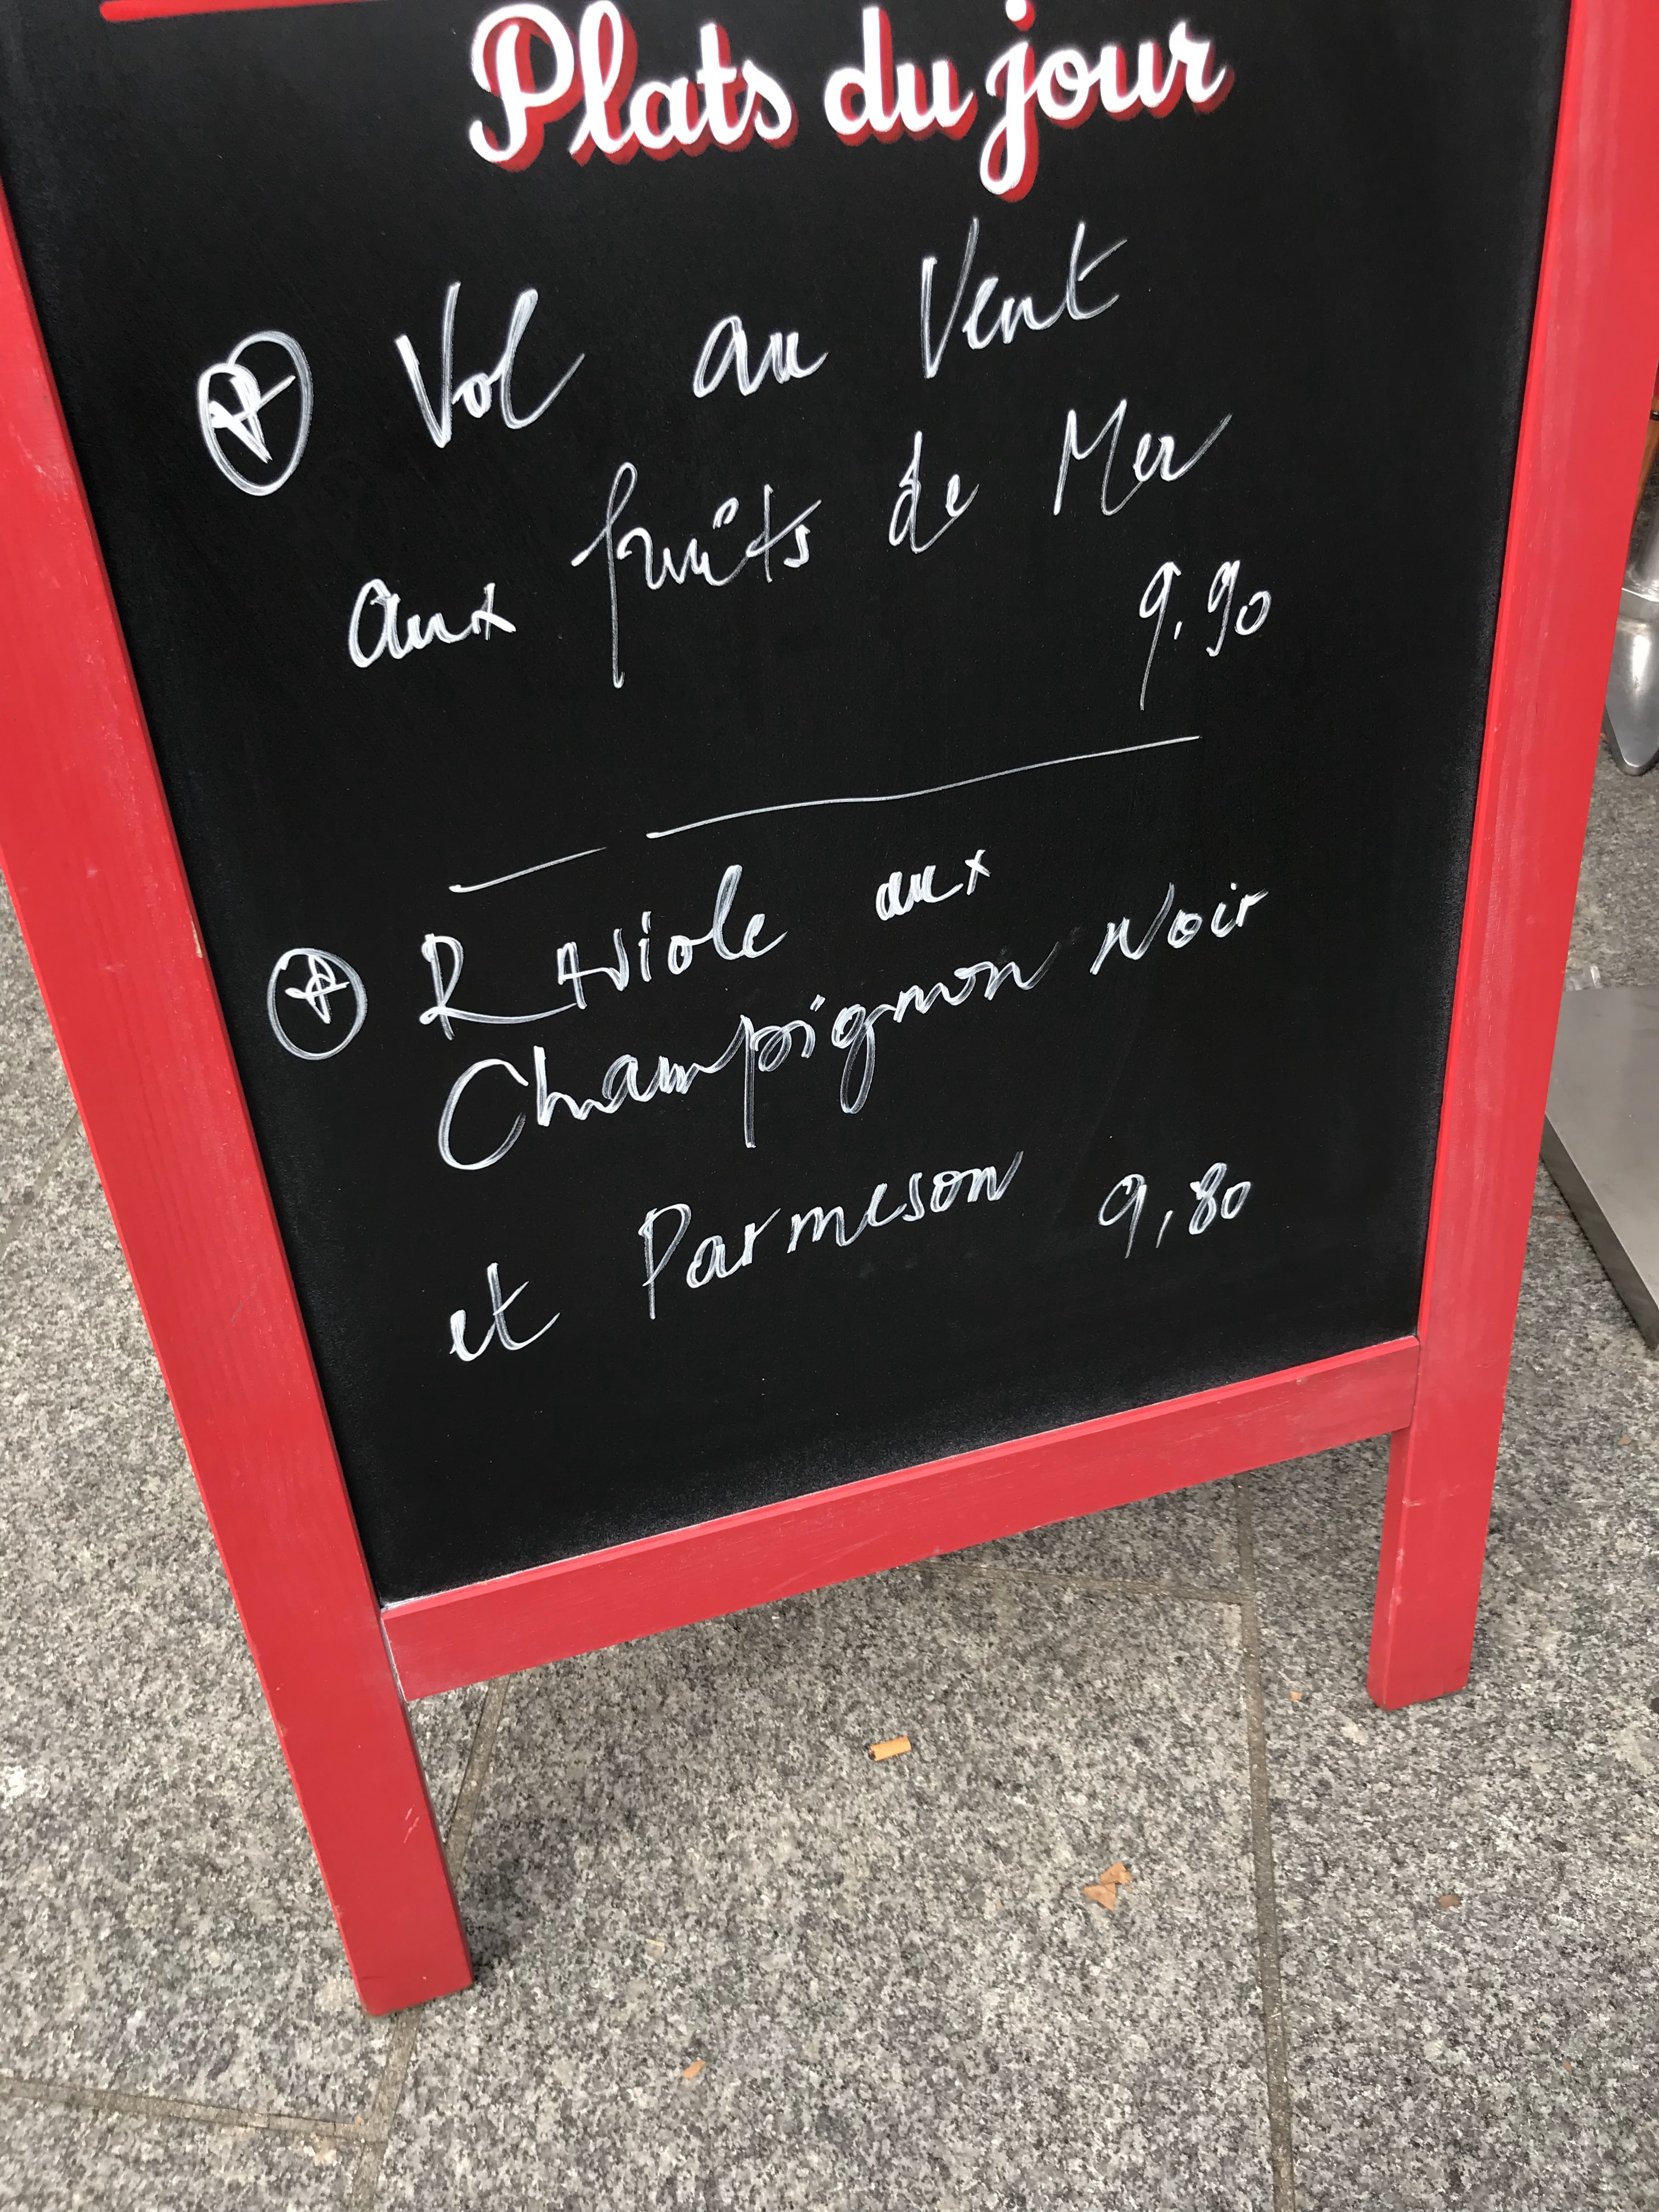 Plats du jour
Vol au Vent
aux fruits de Mer
9.90
Raviole aux
Champignon Noir
et Parmeson 9,80